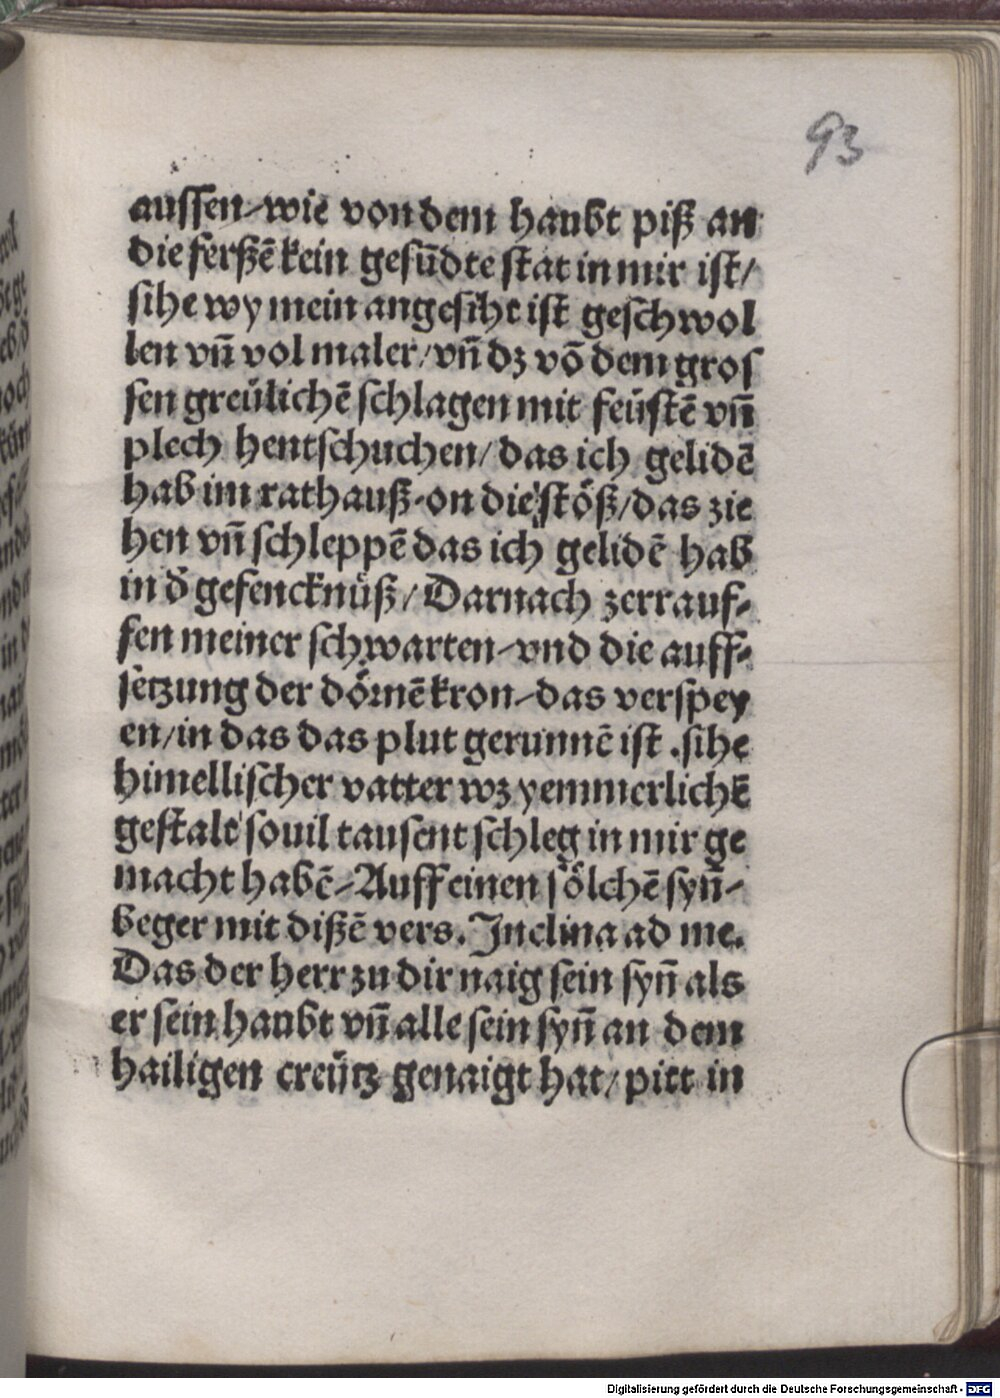 93
aussen/wie von dem haubt piß an
die ferßē kein gesūdte stat in mir ist/
sihe wy mein angesiht ist geschwol
len vn̄ vol maler/vn̄ dz vō dem gros
sen greülichē schlagen mit feüstē vn̄
plech hentschuchen/das ich gelidē
hab im rathauß-on die stöß/das zie
hen vn̄ schleppē das ich gelidē hab
in d̄ gefencknüß/Darnach zerrauf-
fen meiner schwarten-vnd die auff-
setzung der dörnē kron-das verspey
en/in das das plut gerunnē ist .sihe
himellischer vatter wz yemmerlichē
gestalt souil tausent schleg in mir ge
macht habē-Auff einen sölchē syn̄-
beger mit dißē vers. Inclina ad me.
Das der herr zu dir naig sein syn̄ als
er sein haubt vn̄ alle sein syn̄ an dem
hailigen creütz genaigt hat/pitt in
Digitalisierung gefördert durch die Deutsche Forschungsgemeinschaft - DFG